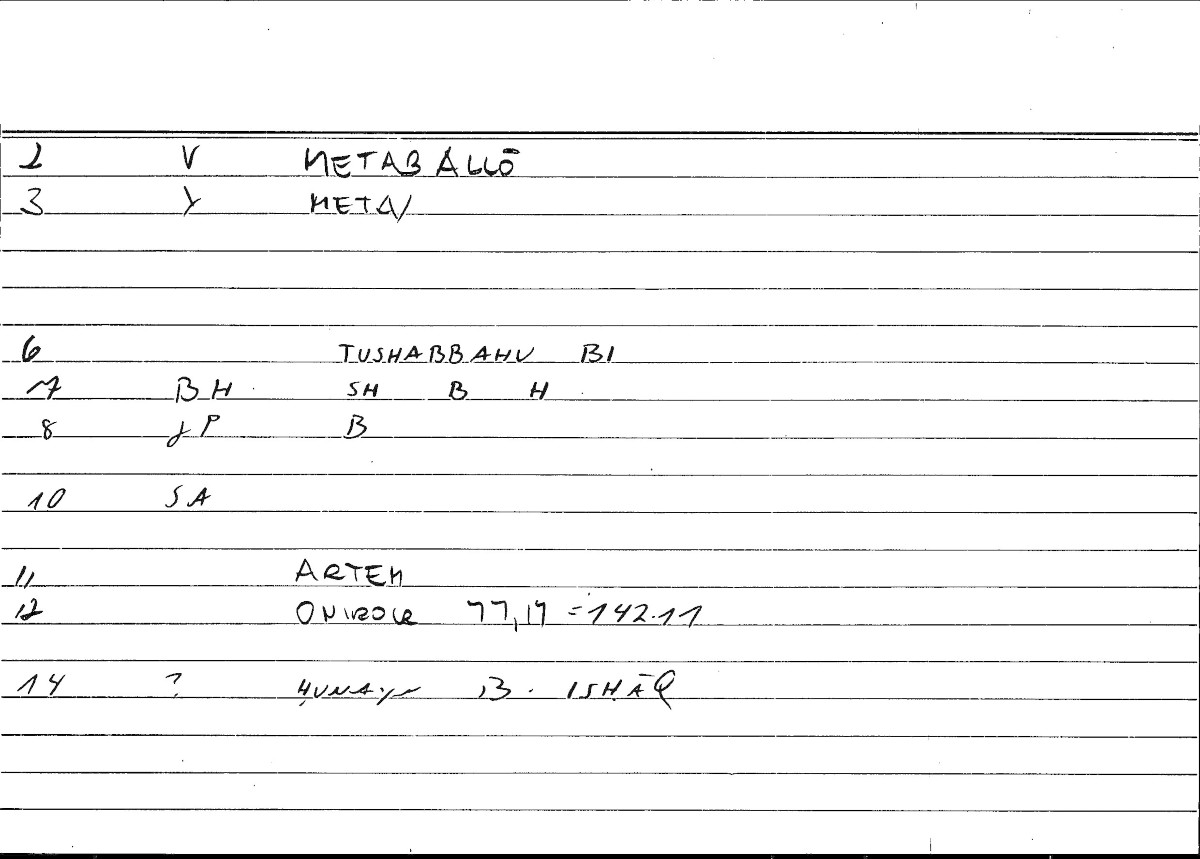 2 V METABÁLLŌ
3 Y META/
6 TUSHABBAHU BI
7 BH SH B H
8 JP B
10 SA
11 ARTEM
12 ONIROCR 77,17 = 142.11
14 ? ḤUNAYN B. ISḤĀQ